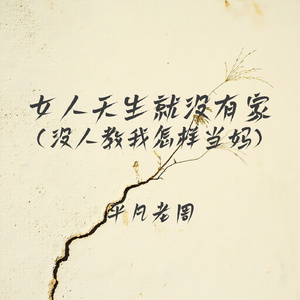 女人天生就没有家
（没人教我怎样当妈）
平凡老周